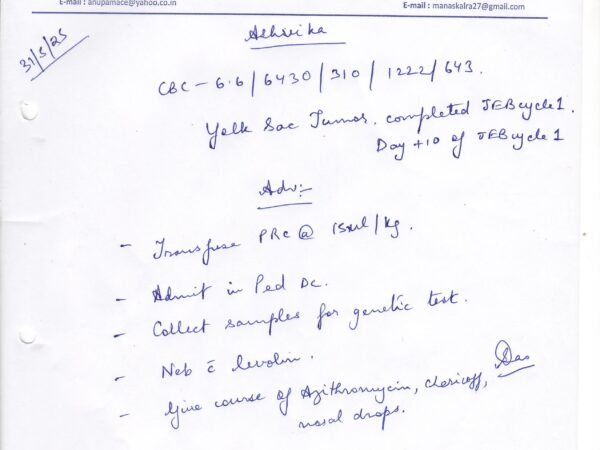 E-mail : anupamace@yahoo.co.in
E-mail : manaskalra27@gmail.com
31/5/25
Ashvika
CBC - 6.6 / 6430 / 310 / 1222 / 643.
Yolk Sac Tumor. completed JEB cycle 1.
Day +10 of JEB cycle 1
Adv:-
- Transfuse PRC @ 15ml/kg.
- Admit in Ped DC.
- Collect samples for genetic test.
- Neb c̄ levolin.
- Give course of Azithromycin, nasal drops.